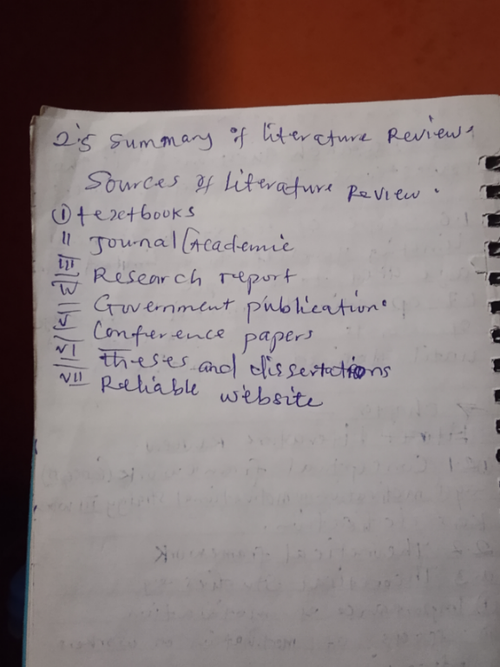 2.5 Summary of literature Review.
Sources of Literature Review.
① textbooks
II Journal [Academic
III Research report
IV Government publication.
V Conference papers
VI Theses and dissertations
VII Reliable website